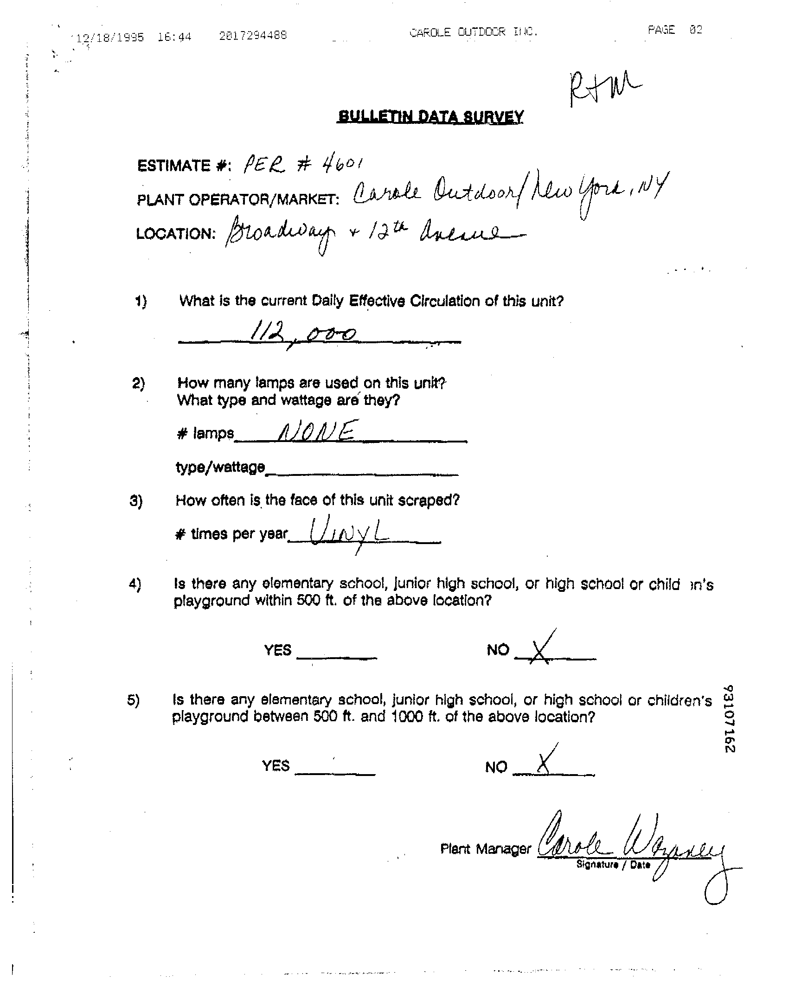 12/18/1995 16:44 2017294488 CAROLE OUTDOOR INC. PAGE 02
R+M
BULLETIN DATA SURVEY
ESTIMATE #: PER # 4601
PLANT OPERATOR/MARKET: Carole Outdoor/New York, NY
LOCATION: Broadway + 12th Avenue
1) What is the current Daily Effective Circulation of this unit?
112,000
2) How many lamps are used on this unit?
What type and wattage are they?
# lamps NONE
type/wattage
3) How often is the face of this unit scraped?
# times per year VINYL
4) Is there any elementary school, junior high school, or high school or child n's
playground within 500 ft. of the above location?
YES NO X
5) Is there any elementary school, junior high school, or high school or children's
playground between 500 ft. and 1000 ft. of the above location?
YES NO X
93107162
Plant Manager Carole
Signature / Date